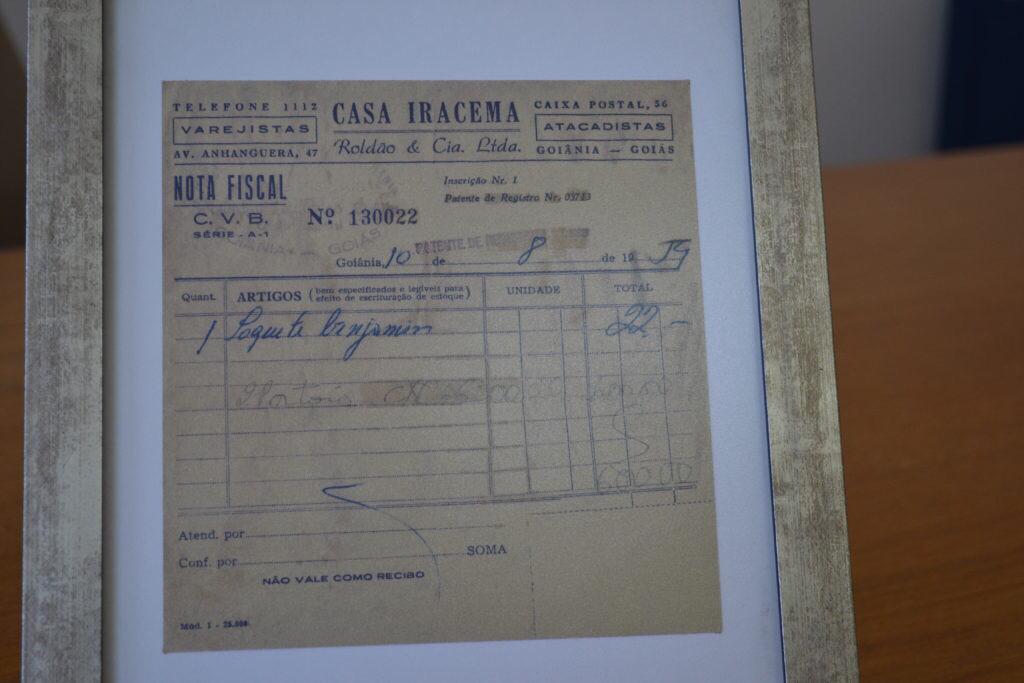 TELEFONE 1112
VAREJISTAS
AV. ANHANGUERA, 47
CASA IRACEMA
Roldão & Cia. Ltda.
CAIXA POSTAL, 56
ATACADISTAS
GOIÂNIA — GOIÁS
NOTA FISCAL
C. V. B.
SÉRIE - A-1
Nº 130022
Inscrição Nr. 1
Patente de Registro Nr.
PATENTE DE
GOIÂNIA - GOIÁS
Goiânia, 10 de 8 de 19
Quant. ARTIGOS (bem especificados e legíveis para efeito de escrituração de estoque) UNIDADE TOTAL
1 Soquete benjamin 22 -
Atend. por
Conf. por
SOMA
NÃO VALE COMO RECIBO
Mod. 1 - 25.000